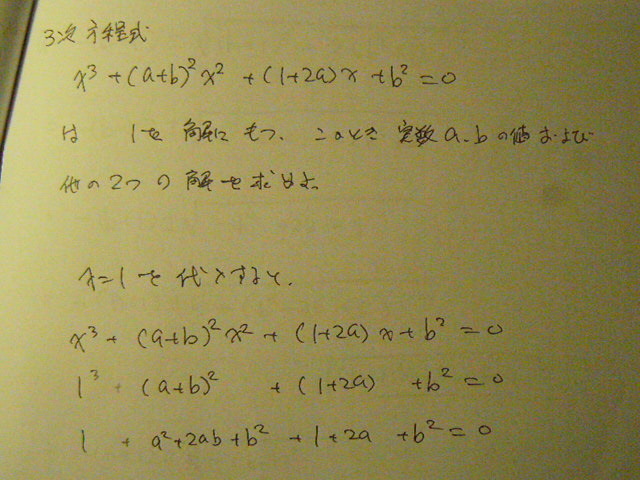 3次方程式
x³+(a+b)²x²+(1+2a)x+b²=0
は 1を解にもつ、このとき実数a、bの値および
他の2つの解を求めよ。
x=1を代入すると、
x³+(a+b)²x²+(1+2a)x+b²=0
1³+(a+b)²+(1+2a)+b²=0
1+a²+2ab+b²+1+2a+b²=0